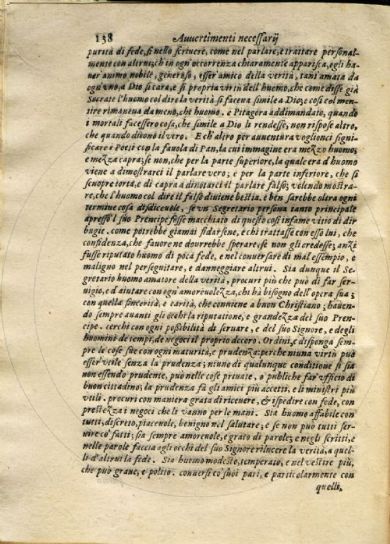 138 Auuertimenti necessarij
purità di fede, sì nello scriuere, come nel parlare, e trattare personal-
mente con altrui; ch in ogn'occorrenza chiaramente apparisca, egli ha-
uer animo nobile, generoso, esser amico della verità, tant'amata da
ogn'vno, a Dio sì cara, e sì propria virtù dell'huomo, che come disse già
Socrate l'huomo col dire la verità si faceua simile a Dio; e così col men-
tire rimaneua da meno, che huomo. e Pitagora addimandato, quando
i mortali facessero cosa, che simile a Dio li rendesse, non rispose altro,
che quando dicono il vero. E ch'altro per auuentura voglionci significa-
re i Poeti con la fauola di Pan, la cui imagine era mezzo huomo,
e mezza capra; se non, che per la parte superiore, la quale era d'huomo
viene a dimostrarci il parlare vero; e per la parte inferiore, che si
scuopre torta, e di capra a dinotarci il parlare falso; volendo mostra-
re, che l'huomo col dire il falso diuiene bestia. e ben sarebbe oltra ogni
termine cosa disdiceuole, se vn Segretario persona tanto principale
apresso 'l suo Prencipe fosse macchiato di questo così infame vitio di bu-
gie. come potrebbe giamai fidarsene, ech'trattasse con esso lui, che
confidenza, che fauore ne dourrebbe sperare, se non gli credesse; anzi
fusse riputato huomo di poca fede, nel conuersare di mal essempio, e
maligno nel perseguitare, e danneggiare altrui. Sia dunque il Se-
gretario huomo amatore della verità, procuri più che può di far serui-
gio, e d'aiutare con ogni amoreuolezza, chi hà bisogno dell'opera sua;
con quella sincerità, e carità, che conuiene a buon Christiano; hauen-
do sempre auanti gli occhi la riputatione, e grandezza del suo Pren-
cipe. cerchi con ogni possibilità di seruare, e del suo Signore, e degli
huomini de tempi, de negoci il proprio decoro. Ordini, e disponga sem-
pre le cose sue con ogni maturità, e prudenza; perche niuna virtù può
esser'vtile senza la prudenza; niuno di qualunque conditione si sia
non essendo prudente, può nelle cose priuate, o publiche far'vfficio di
buon cittadino; la prudenza fà gli amici più accetti, e li ministri più
vtili. procuri con maniera grata di riceuere, & ispedire con fede, con
prestezza i negoci che li vanno per le mani. Sia huomo affabile con
tutti, discreto, piaceuole, benigno nel salutare; e se non può tutti ser-
uire co' fatti; sia sempre amoreuole, e grato di parole; e negli scritti, e
nelle parole faccia agli occhi del suo Signore rilucere la verità, a quel-
li d'altrui la fede. Sia huomo modesto, temperato, e nel vestire più,
che può graue, e polito. conuersi co'suoi pari, e particolarmente con
quelli,